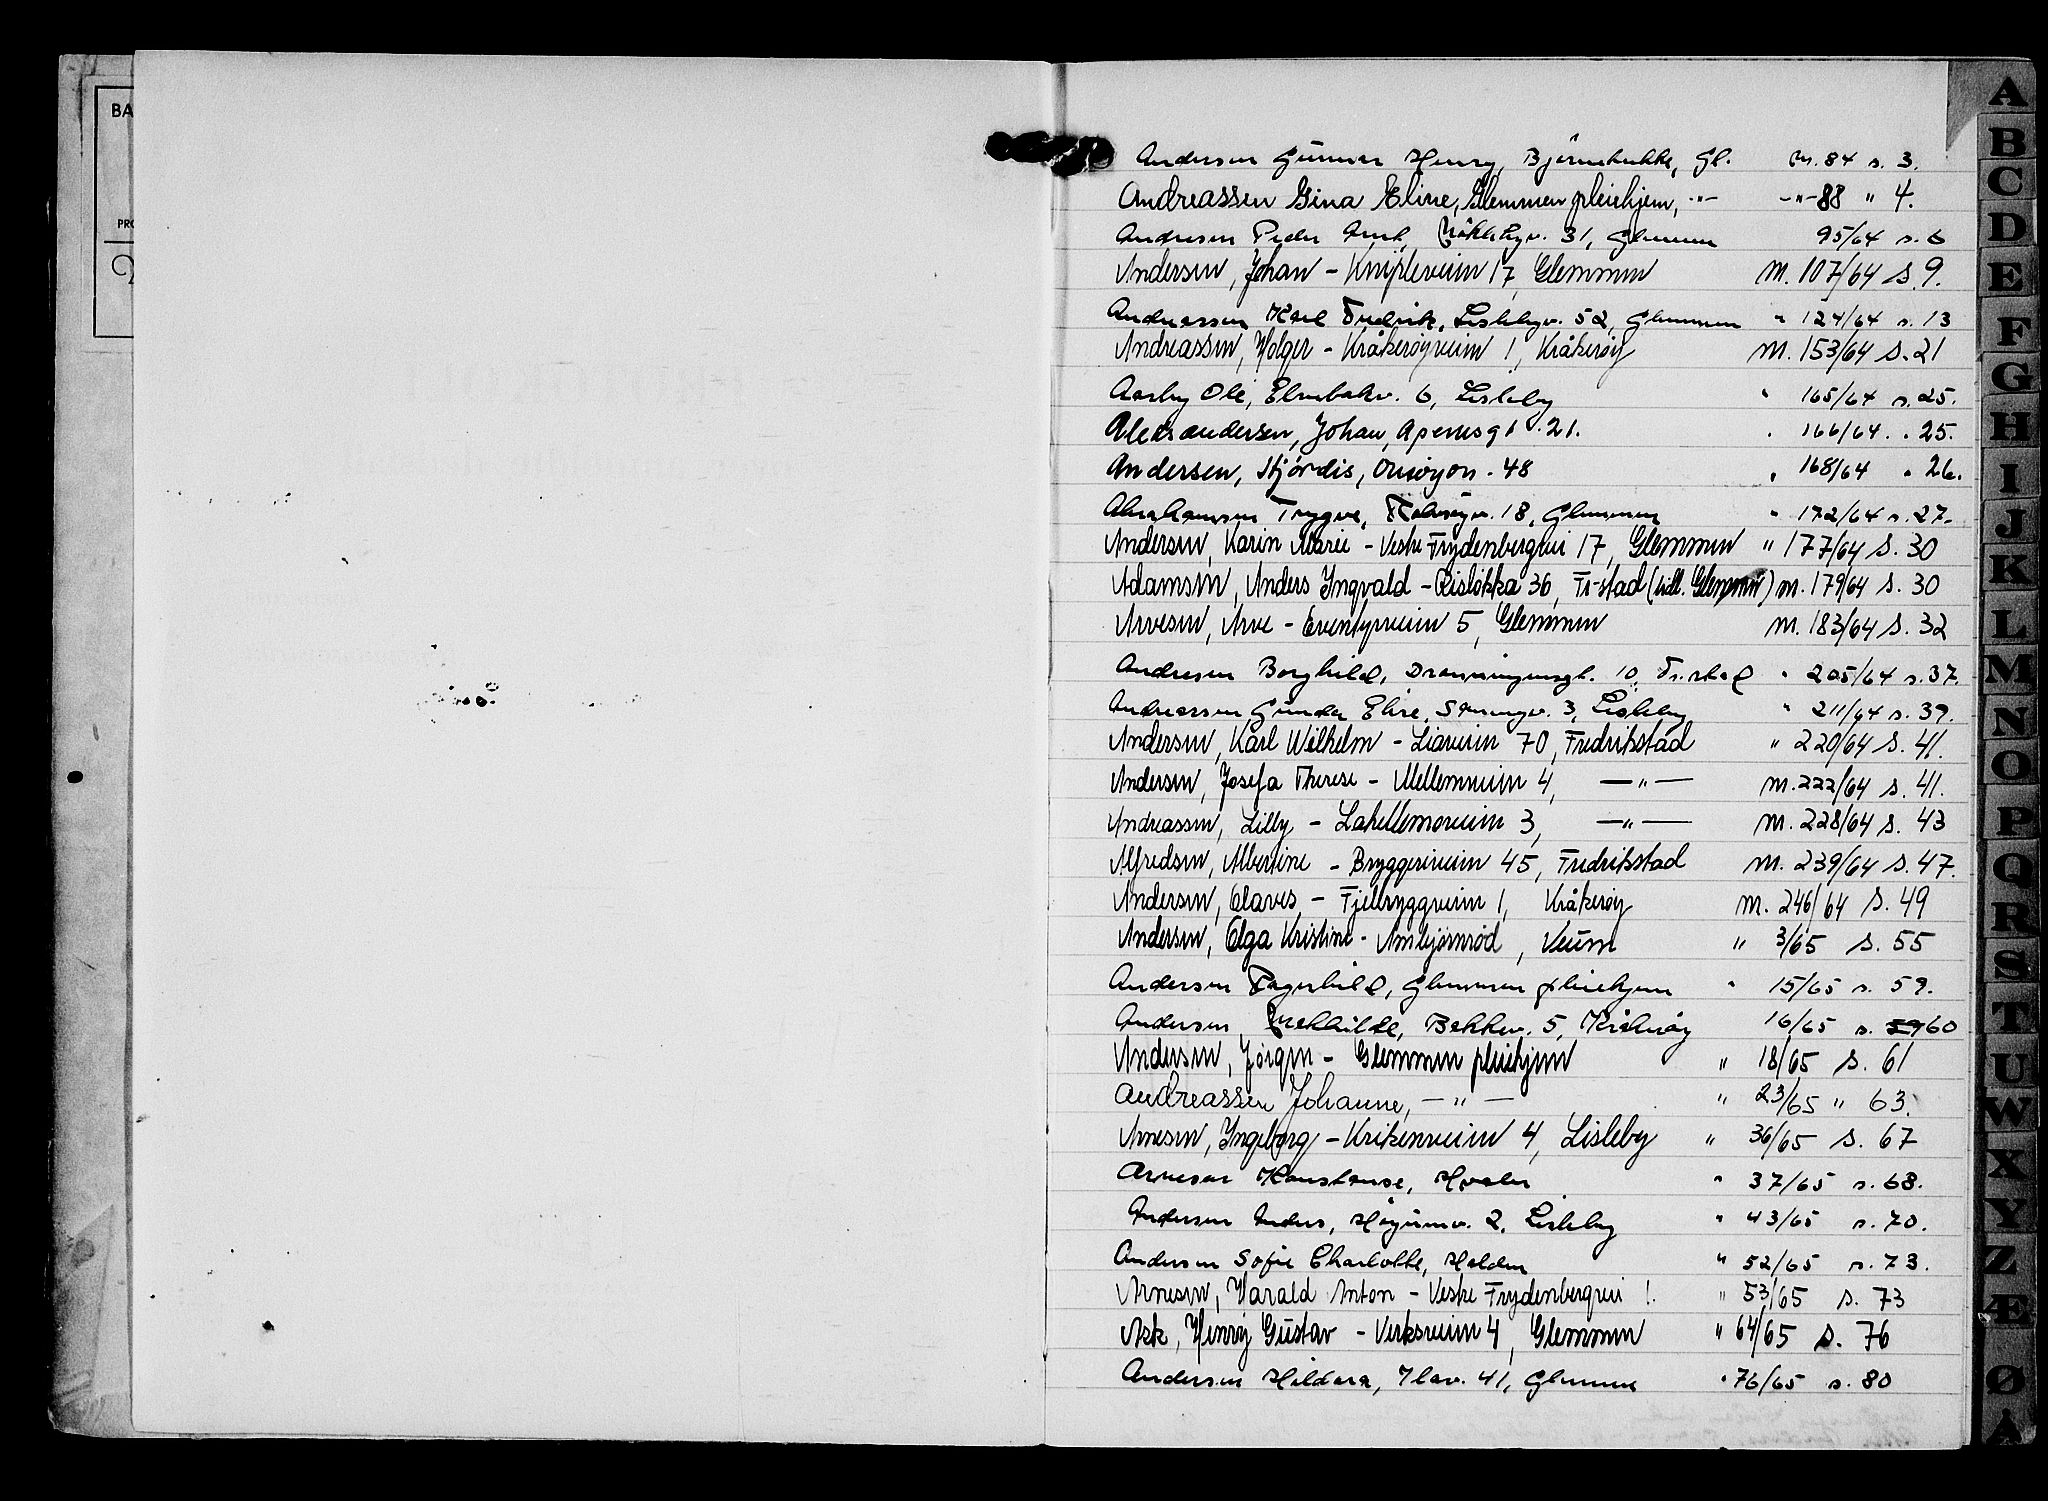 BA
PRO
Andersen Gunnar Henry, Bjørnebekke, Gl. m. 84 s. 3.
Andreassen Gina Eline, Glemmen pleiehjem, -"- -"-88 " 4.
Andresen Peder 31, Glemmen 95/64 s. 6
Andersen, Johan - Knipleveien 17, Glemmen m. 107/64 s. 9.
Andreassen Karl Fredrik, Lislebyv. 52, Glemmen " 124/64 s. 13
Andreassen, Holger - Kråkerøyveien 1, Kråkerøy m. 153/64 s. 21
Aasby Ole, 6, Lisleby " 165/64 s. 25.
Aleksandersen, Johan, Apenesgt. 21. " 166/64. " 25.
Andersen, Hjørdis, Onsøyon. 48 " 168/64 " 26.
Abrahamsen Trygve, 18, Glemmen " 172/64 s. 27.
Andersen, Karin Marie - Vestre Frydenbergvei 17, Glemmen " 177/64 s. 30
Adamsen, Anders Ingvald - Risløkka 36, Fr-stad (tidl. Glemmen) m. 179/64 s. 30
Arvesen, Arve - Eventyrveien 5, Glemmen m. 183/64 s. 32
Andresen Borghild, Dronningensgt. 10, Fr.stad " 205/64 s. 37.
Andreassen Gunda Elise, 3, Lisleby " 211/64 s. 39.
Andersen, Karl Wilhelm - Liaveien 70, Fredrikstad " 220/64 s. 41.
Andersen, Josefa Therese - Mellemveien 4, -"- m. 222/64 s. 41.
Andreassen, Lilly - Lakellemoveien 3, -"- m. 228/64 s. 43
Alfredsen, Albertine - Bryggeriveien 45, Fredrikstad m. 239/64 s. 47.
Andersen, Olaves - Fjellryggveien 1, Kråkerøy m. 246/64 s. 49
Andersen, Olga Kristine - Ambjørnrød, Veum " 3/65 s. 55
Andersen Ragnhild, Glemmen pleiehjem " 15/65 s. 59.
Andersen Mekhilde, Bekkev. 5, Kråkerøy 16/65 s. 59 60
Andersen, Jørgen - Glemmen pleiehjem " 18/65 s. 61
Andreassen Johanne, -"- " 23/65 " 63.
Arnesen, Ingeborg - Krikenveien 4, Lisleby " 36/65 s. 67
Arnesen Konstanse, Hvaler " 37/65 s. 68.
Andersen Anders, Høyumv. 2, Lisleby " 43/65 s. 70.
Andersen Sofie Charlotte, Halden " 52/65 s. 73.
Arnesen, Harald Anton - Vestre Frydenbergvei 1. " 53/65 s. 73
Ask, Henry Gustav - Verksveien 4, Glemmen " 64/65 s. 76
Andersen Hildara, 41, Glemmen " 76/65 s. 80
A
B
C
D
E
F
G
H
I
J
K
L
M
N
O
P
Q
R
S
T
U
W
X
Y
Z
Æ
Ø
Å